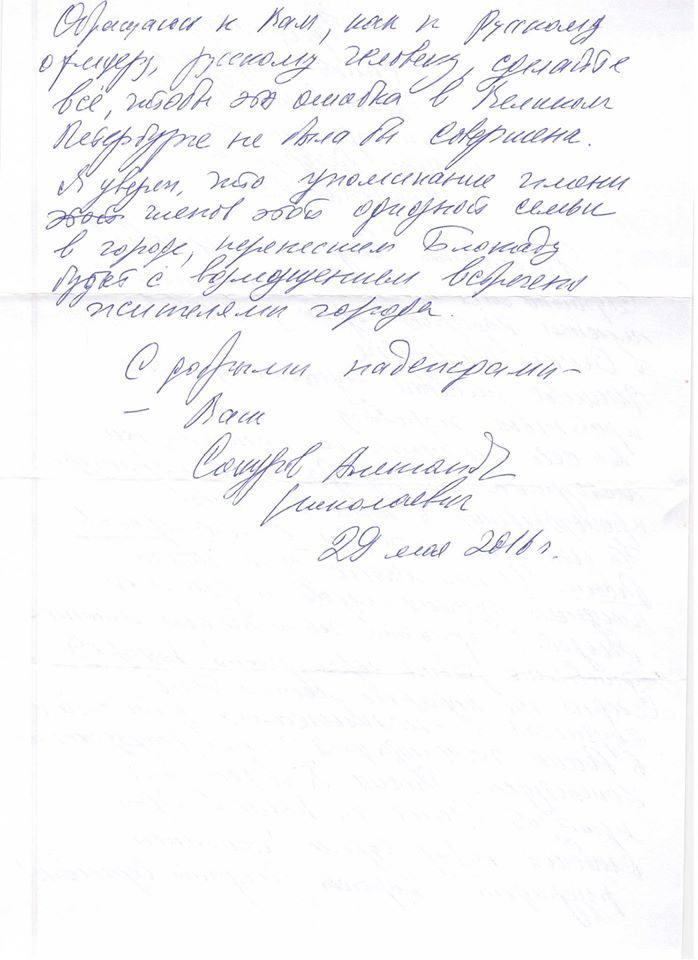 Обращаюсь к Вам, как к Русскому
офицеру, русскому человеку, сделайте
всё, чтобы эта ошибка в Великом
Петербурге не была бы совершена.
Я уверен, что упоминание имени
этой членов этой одиозной семьи
в городе, перенесшем Блокаду
будет с возмущением встречено
жителями города.
С добрыми надеждами –
– Ваш
Сокуров Александр
Николаевич
29 мая 2016 г.